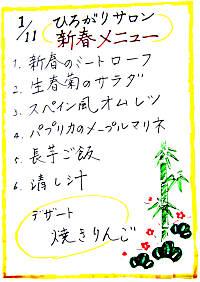 1/11 ひろがりサロン
新春メニュー
1. 新春のミートローフ
2. 生春菊のサラダ
3. スペイン風オムレツ
4. パプリカのメープルマリネ
5. 長芋ご飯
6. 清し汁
デザート
焼きりんご